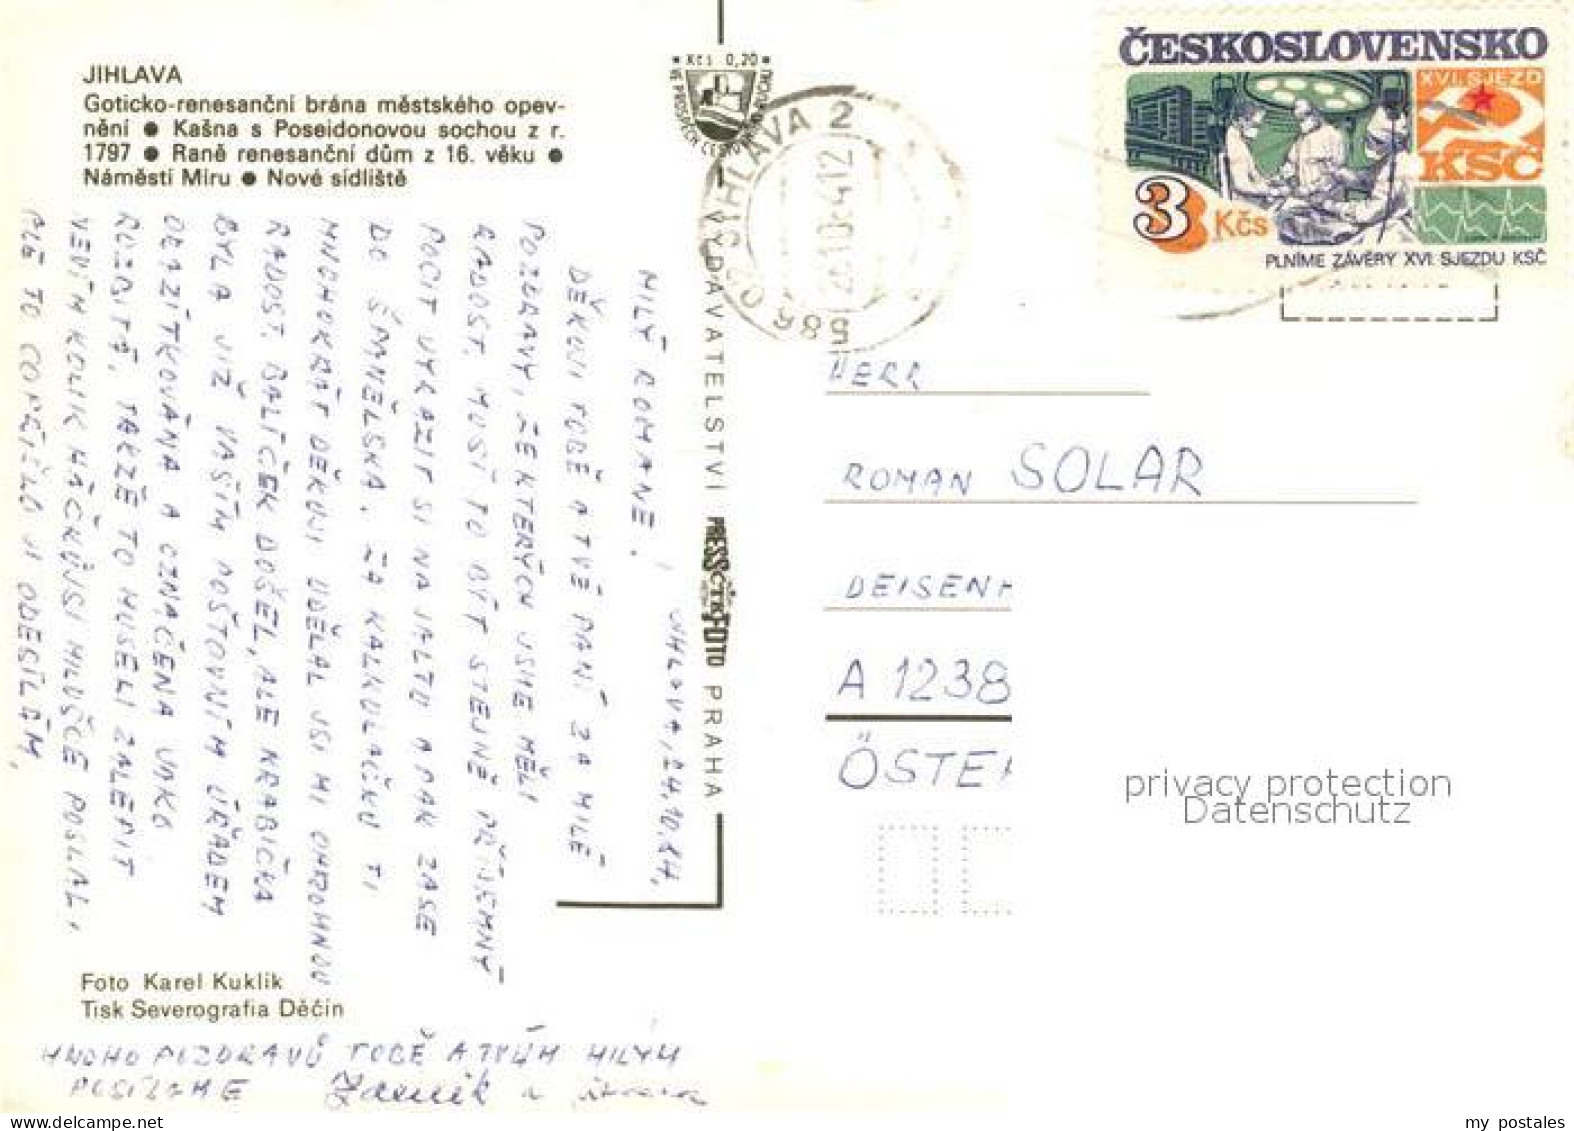 JIHLAVA
Goticko-renesanční brána městského opev-
nění ● Kašna s Poseidonovou sochou z r.
1797 ● Raně renesanční dům z 16. věku ●
Náměstí Míru ● Nové sídliště
JIHLAVA, 24.10.84,
MILÝ ROMANE!
DĚKUJI TOBĚ A TVÉ PANÍ ZA MILÉ
POZDRAVY, ZE KTERÝCH JSME MĚLI
RADOST. MUSÍ TO BÝT STEJNĚ PŘÍJEMNÝ
POCIT VYRAZIT SI NA JALTU A PAK ZASE
DO ŠPANĚLSKA. ZA KALKULAČKU TI
MNOHOKRÁT DĚKUJI UDĚLAL JSI MI OHROMNOU
RADOST. BALÍČEK DOŠEL, ALE KRABIČKA
BYLA JIŽ VAŠÍM POŠTOVNÍM ÚŘADEM
ORAZÍTKOVÁNA A OZNAČENA JAKO
ROZBITÁ, TAKŽE TO MUSELI ZALEPIT
VEDÍM KOLIK HÁČKŮ JSI MILUŠCE POSLAL,
ALE TO
ODESÍLÁM,
Foto Karel Kuklík
Tisk Severografia Děčín
MNOHO POZDRAVŮ TOBĚ A TVÝM MILÝM
POSÍLÁME Zdeněk a
Kčs 0,20
VYDAVATELSTVÍ PRESSFOTO PRAHA
JIHLAVA 2
586 02
24.10.84.12
ČESKOSLOVENSKO
XVI. SJEZD
KSČ
3 Kčs
PLNÍME ZÁVĚRY XVI. SJEZDU KSČ
HERR
ROMAN SOLAR
DEISENH
A 1238
ÖSTE
privacy protection
Datenschutz
www.delcampe.net
my_postales